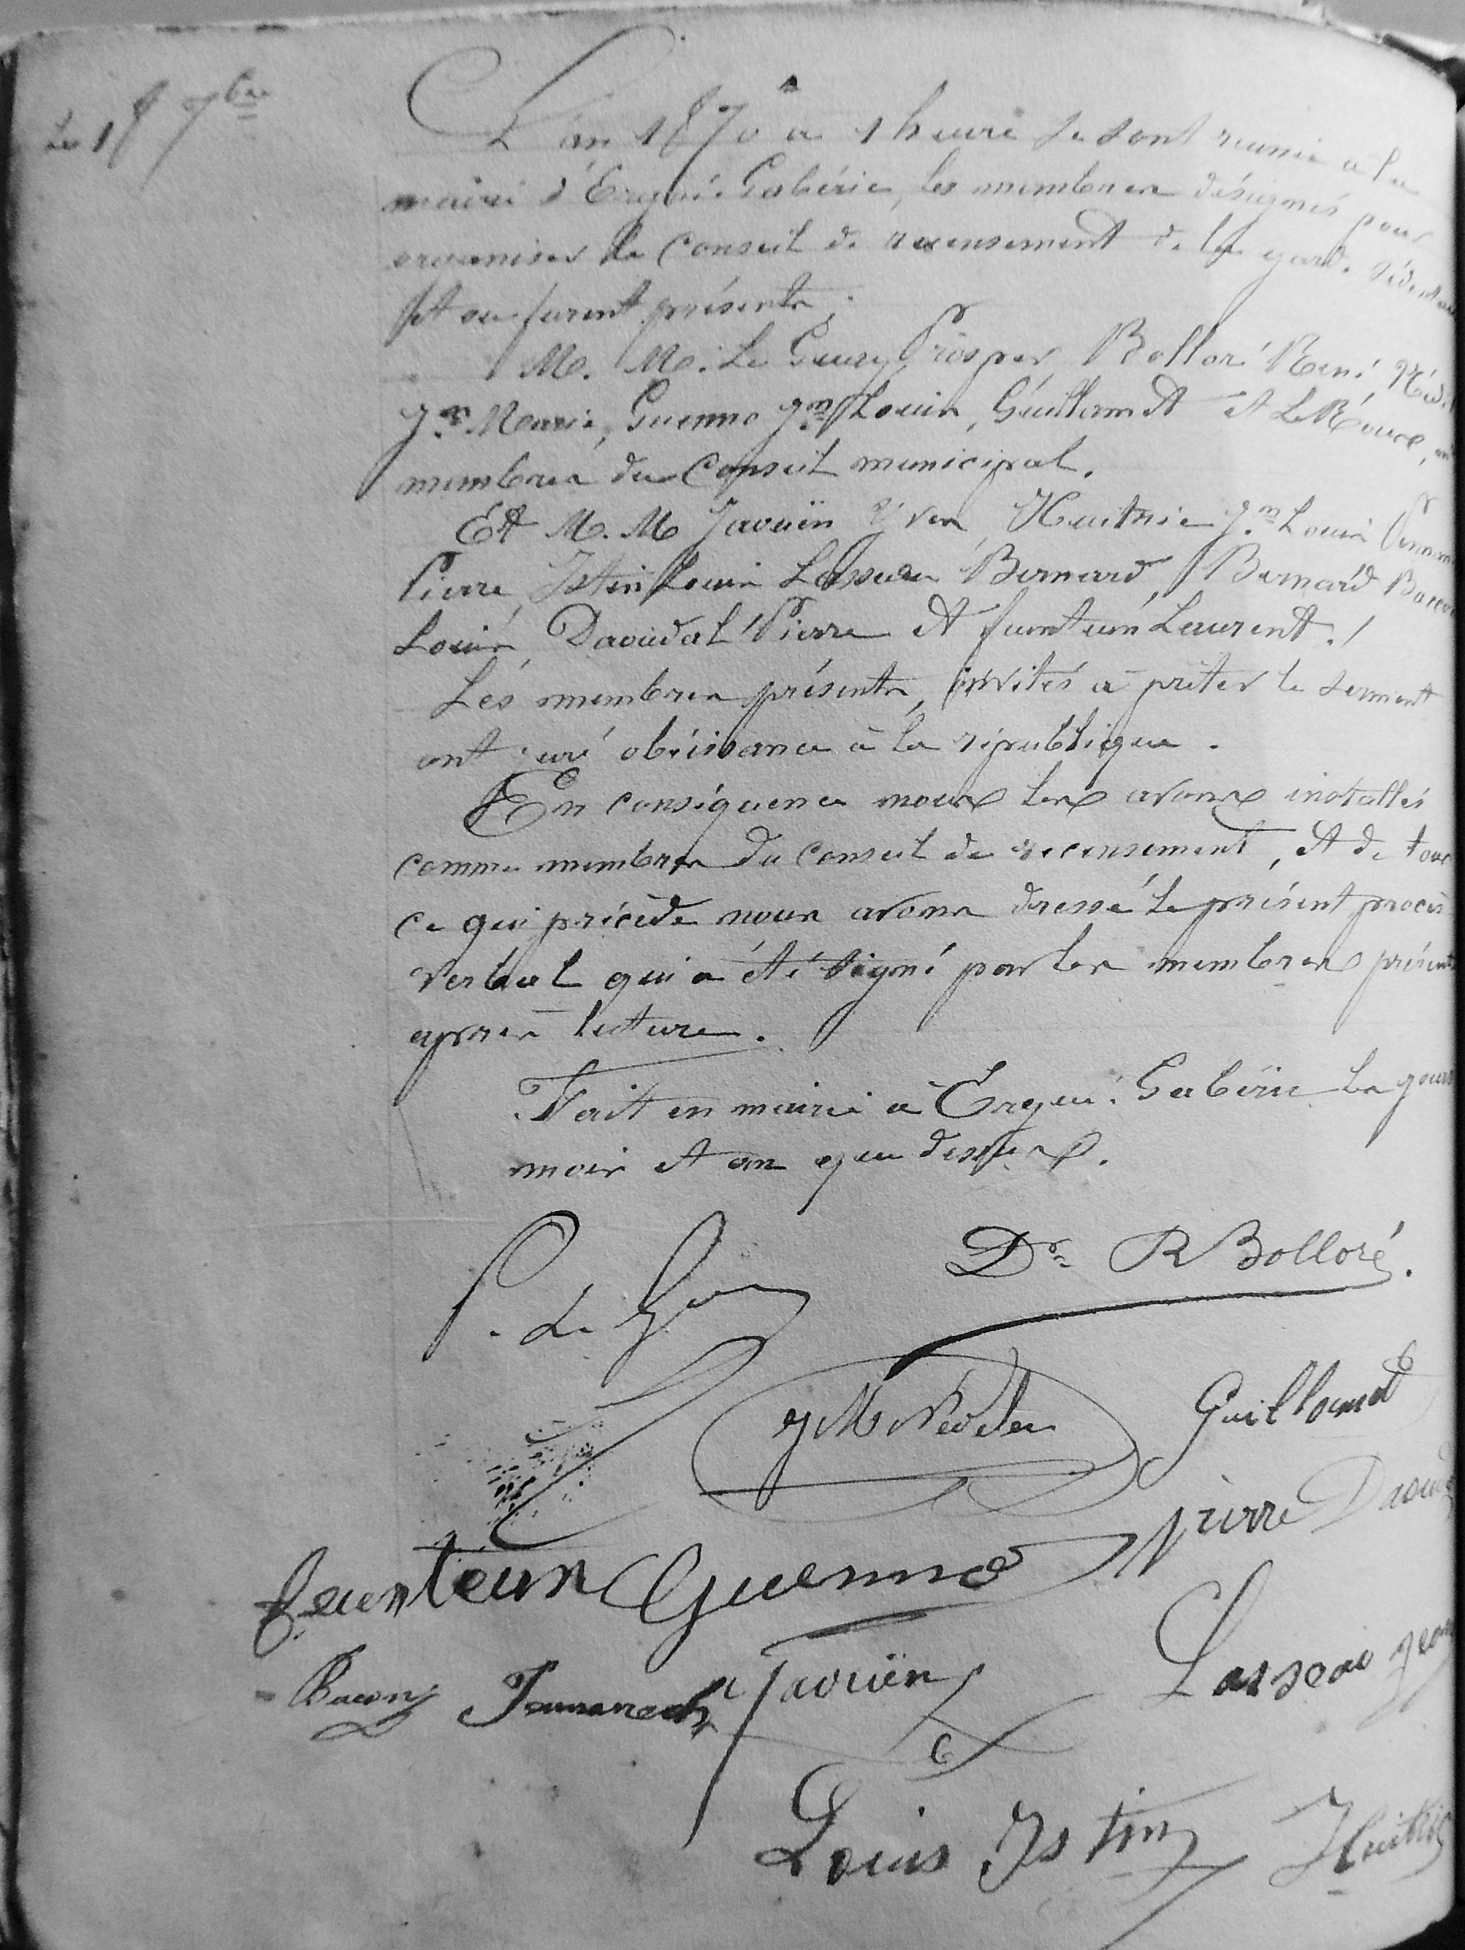 Le 18 7bre
L'an 1870 à 1 heure se sont reunis à la
mairie d'Ergué-Gabéric, les membres désignés pour
organiser le conseil de recensement de la garde
Et ou furent présents :
M. M. Le Guay Prosper, Bolloré René,
Jn Marie, Guenno Jn Louis, Guillamot et Le Roux,
membres du Conseil municipal.
Et M. M Jaouën Yves, Huitric Jn Louis
Pierre, Istin Louis Lasseau Bernard, Bernard
Louis, Daoudal Pierre et funteun Laurent./
Les membres présents, invités à prêter le serment
ont juré obéissance à la république.
En conséquence nous les avons installés
comme membres du conseil de recensement, et de tout
ce qui précède nous avons dressé le présent procès
verbal qui a été signé par les membres présents
après lecture.
Fait en mairie à Ergué-Gabéric les jour
mois et an que dessus.
P. Le Guay
Dr R Bolloré.
JM Nédelec
Guillamot
Pierre
feunteun Guenno
Jaouën
Lasseau Jean
Louis Istin Huitric